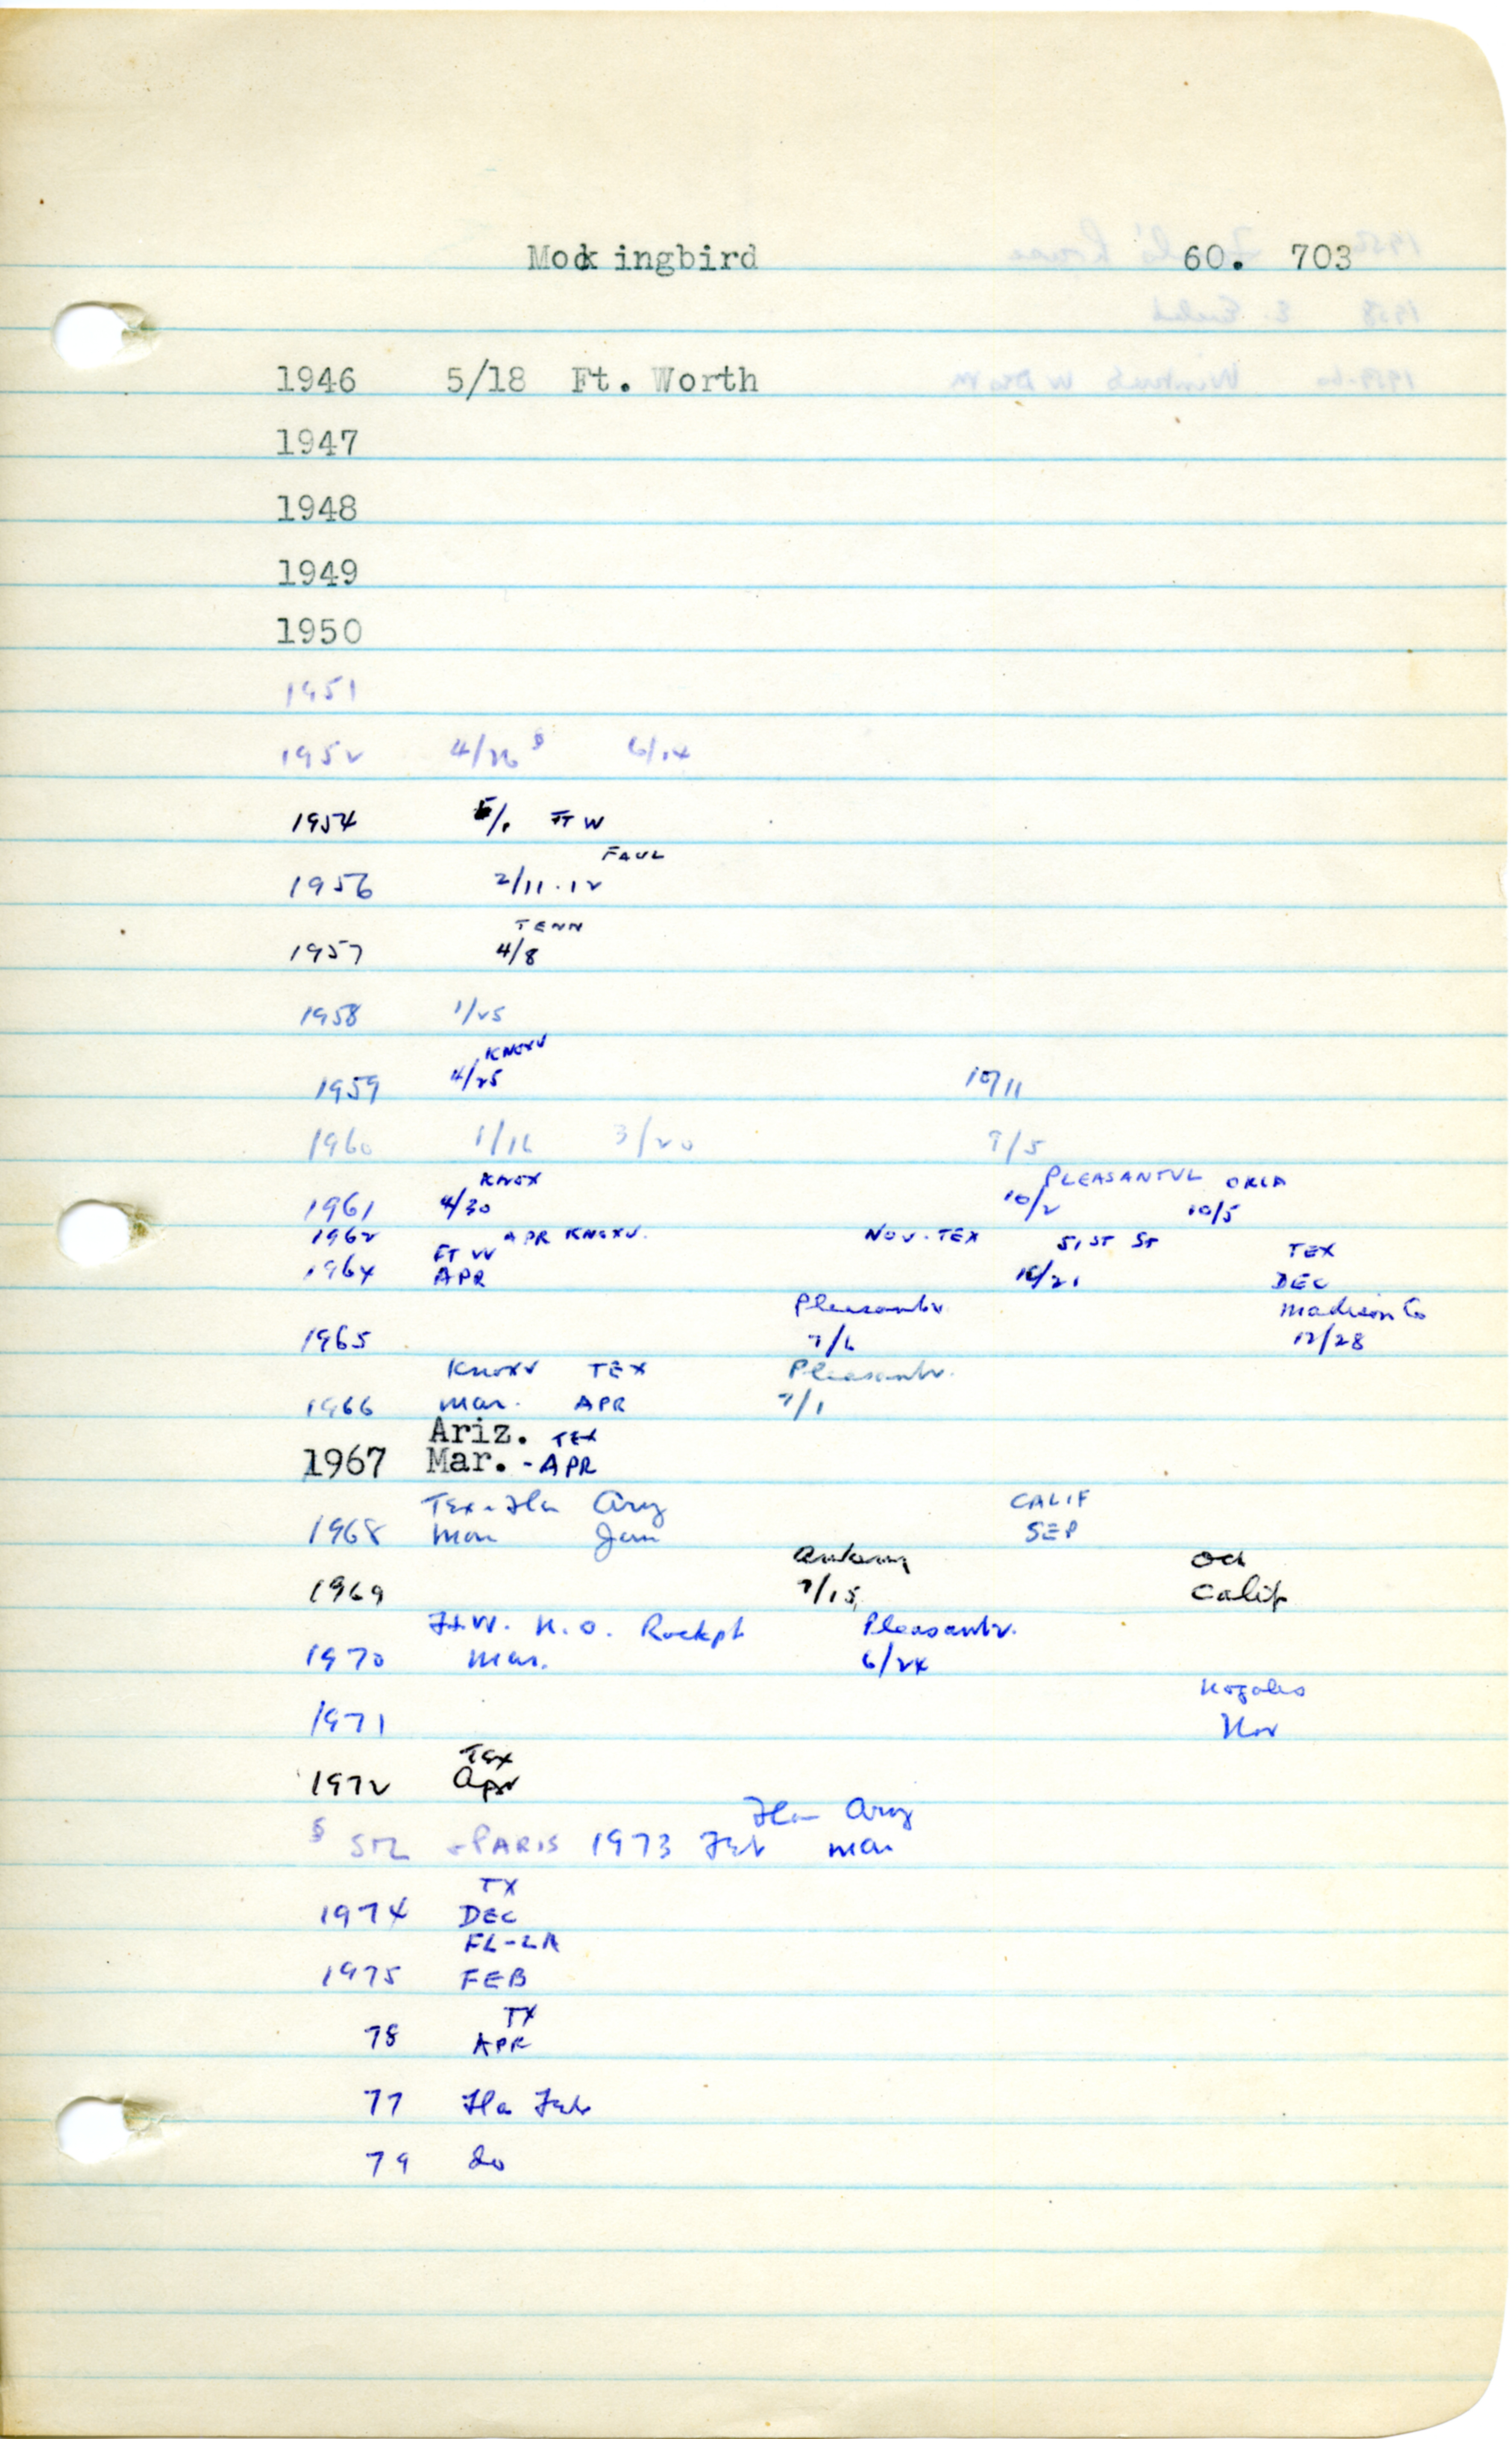 Mockingbird 60. 703
1946 5/18 Ft. Worth
1947
1948
1949
1950
1951
1952 4/26 § 6/14
1954 5/1 FT W
FAUL
1956 2/11-12
TENN
1957 4/8
1958 1/25
KNOXV
1959 4/25 10/11
1960 1/16 3/20 9/5
KNOX PLEASANTVL OKLA
1961 4/30 10/2 10/5
1962 APR KNOXV. NOV. TEX
FT W 51 ST ST TEX
1964 APR 10/21 DEC
Pleasantv. Madison Co
1965 7/6 12/28
Knoxv TEX Pleasantv.
1966 Mar. APR 7/1
Ariz. TEX
1967 Mar. - APR
Tex - Fla Ariz CALIF
1968 Mar Jan SEP
Ankeny Oct
1969 7/15 Calif
Ft.W. N.O. Rockpt Pleasantv.
1970 Mar. 6/24
Nogales
1971 Nov
Tex
1972 Apr
Fla Ariz
§ STL - PARIS 1973 Feb Mar
TX
1974 DEC
FL-LA
1975 FEB
TX
78 APR
77 Fla Feb
79 do